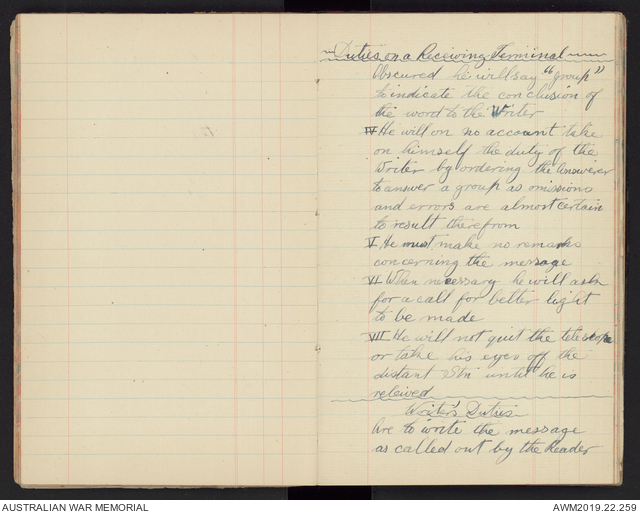 Duties on a Receiving Terminal
Obscured he will say "group"
to indicate the conclusion of
the word to the Writer
IV He will on no account take
on himself the duty of the
Writer by ordering the Answerer
to answer a group as omissions
and errors are almost certain
to result therefrom
V He must make no remarks
concerning the message
VI When necessary he will ask
for a call for better light
to be made
VII He will not quit the telescope
or take his eyes off the
distant Stn until he is
releived
Writer's Duties
Are to write the message
as called out by the Reader
AUSTRALIAN WAR MEMORIAL
AWM2019.22.259